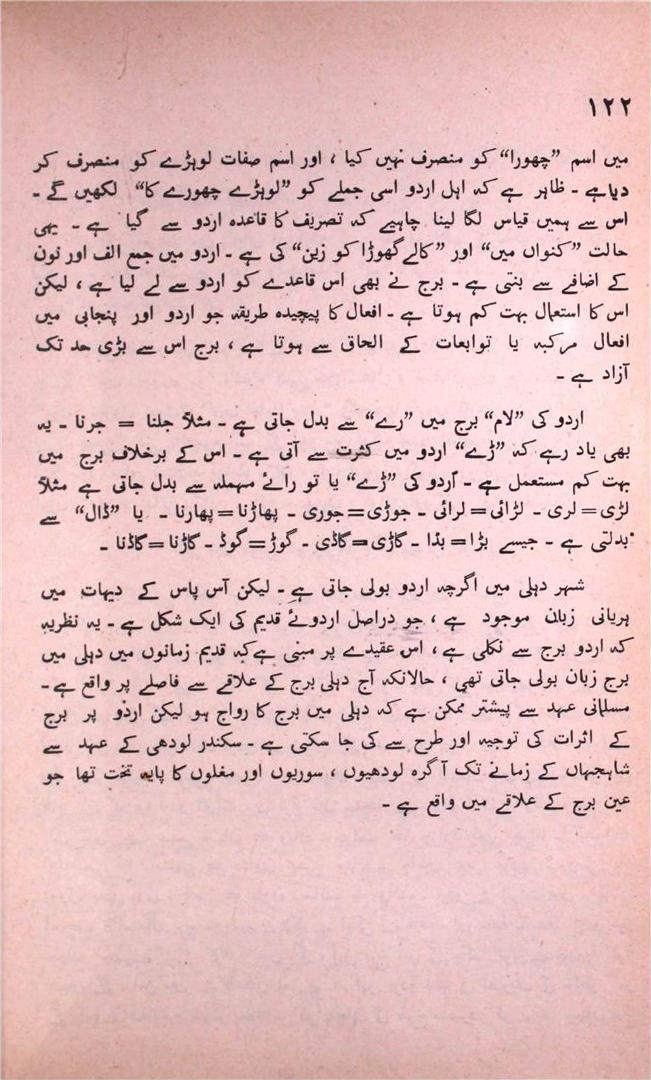 ۱۲۲
میں اسم ”چھورا“ کو منصرف نہیں کیا ، اور اسم صفات لوہڑے کو منصرف کر
دیا ہے ۔ ظاہر ہے کہ اہل اردو اسی جملے کو ”لوہڑے چھورے کا“ لکھیں گے ۔
اس سے ہمیں قیاس لگا لینا چاہیے کہ تصریف کا قاعدہ اردو سے گیا ہے ۔ یہی
حالت ”کنواں میں“ اور ”کالے گھوڑا کو زین“ کی ہے ۔ اردو میں جمع الف اور نون
کے اضافے سے بنتی ہے ۔ برج نے بھی اس قاعدے کو اردو سے لے لیا ہے ، لیکن
اس کا استعمال بہت کم ہوتا ہے ۔ افعال کا پیچیدہ طریقہ جو اردو اور پنجابی میں
افعال مرکبہ یا توابعات کے الحاق سے ہوتا ہے ، برج اس سے بڑی حد تک
آزاد ہے ۔
اردو کی ”لام“ برج میں ”رے“ سے بدل جاتی ہے ۔ مثلاً جلنا = جرنا ۔ یہ
بھی یاد رہے کہ ”ڑے“ اردو میں کثرت سے آتی ہے ۔ اس کے برخلاف برج میں
بہت کم مستعمل ہے ۔ اُردو کی ”ڑے“ یا تو رائے مہملہ سے بدل جاتی ہے مثلاً
لڑی=لری ۔ لڑائی=لرائی ۔ جوڑی=جوری ۔ پھاڑنا=پھارنا ۔ یا ”ڈال“ سے
بدلتی ہے ۔ جیسے بڑا=بڈا ۔ گاڑی=گاڈی ۔ گوڑ=گوڈ ۔ گاڑنا=گاڈنا ۔
شہر دہلی میں اگرچہ اردو بولی جاتی ہے ۔ لیکن آس پاس کے دیہات میں
ہریانی زبان موجود ہے ، جو دراصل اردوئے قدیم کی ایک شکل ہے ۔ یہ نظریہ
کہ اردو برج سے نکلی ہے ، اس عقیدے پر مبنی ہے کہ قدیم زمانوں میں دہلی میں
برج زبان بولی جاتی تھی ، حالانکہ آج دہلی برج کے علاقے سے فاصلے پر واقع ہے ۔
مسلمانی عہد سے پیشتر ممکن ہے کہ دہلی میں برج کا رواج ہو لیکن اردو پر برج
کے اثرات کی توجیہ اور طرح سے کی جا سکتی ہے ۔ سکندر لودھی کے عہد سے
شاہجہاں کے زمانے تک آگرہ لودھیوں ، سوریوں اور مغلوں کا پایہ تخت تھا جو
عین برج کے علاقے میں واقع ہے ۔